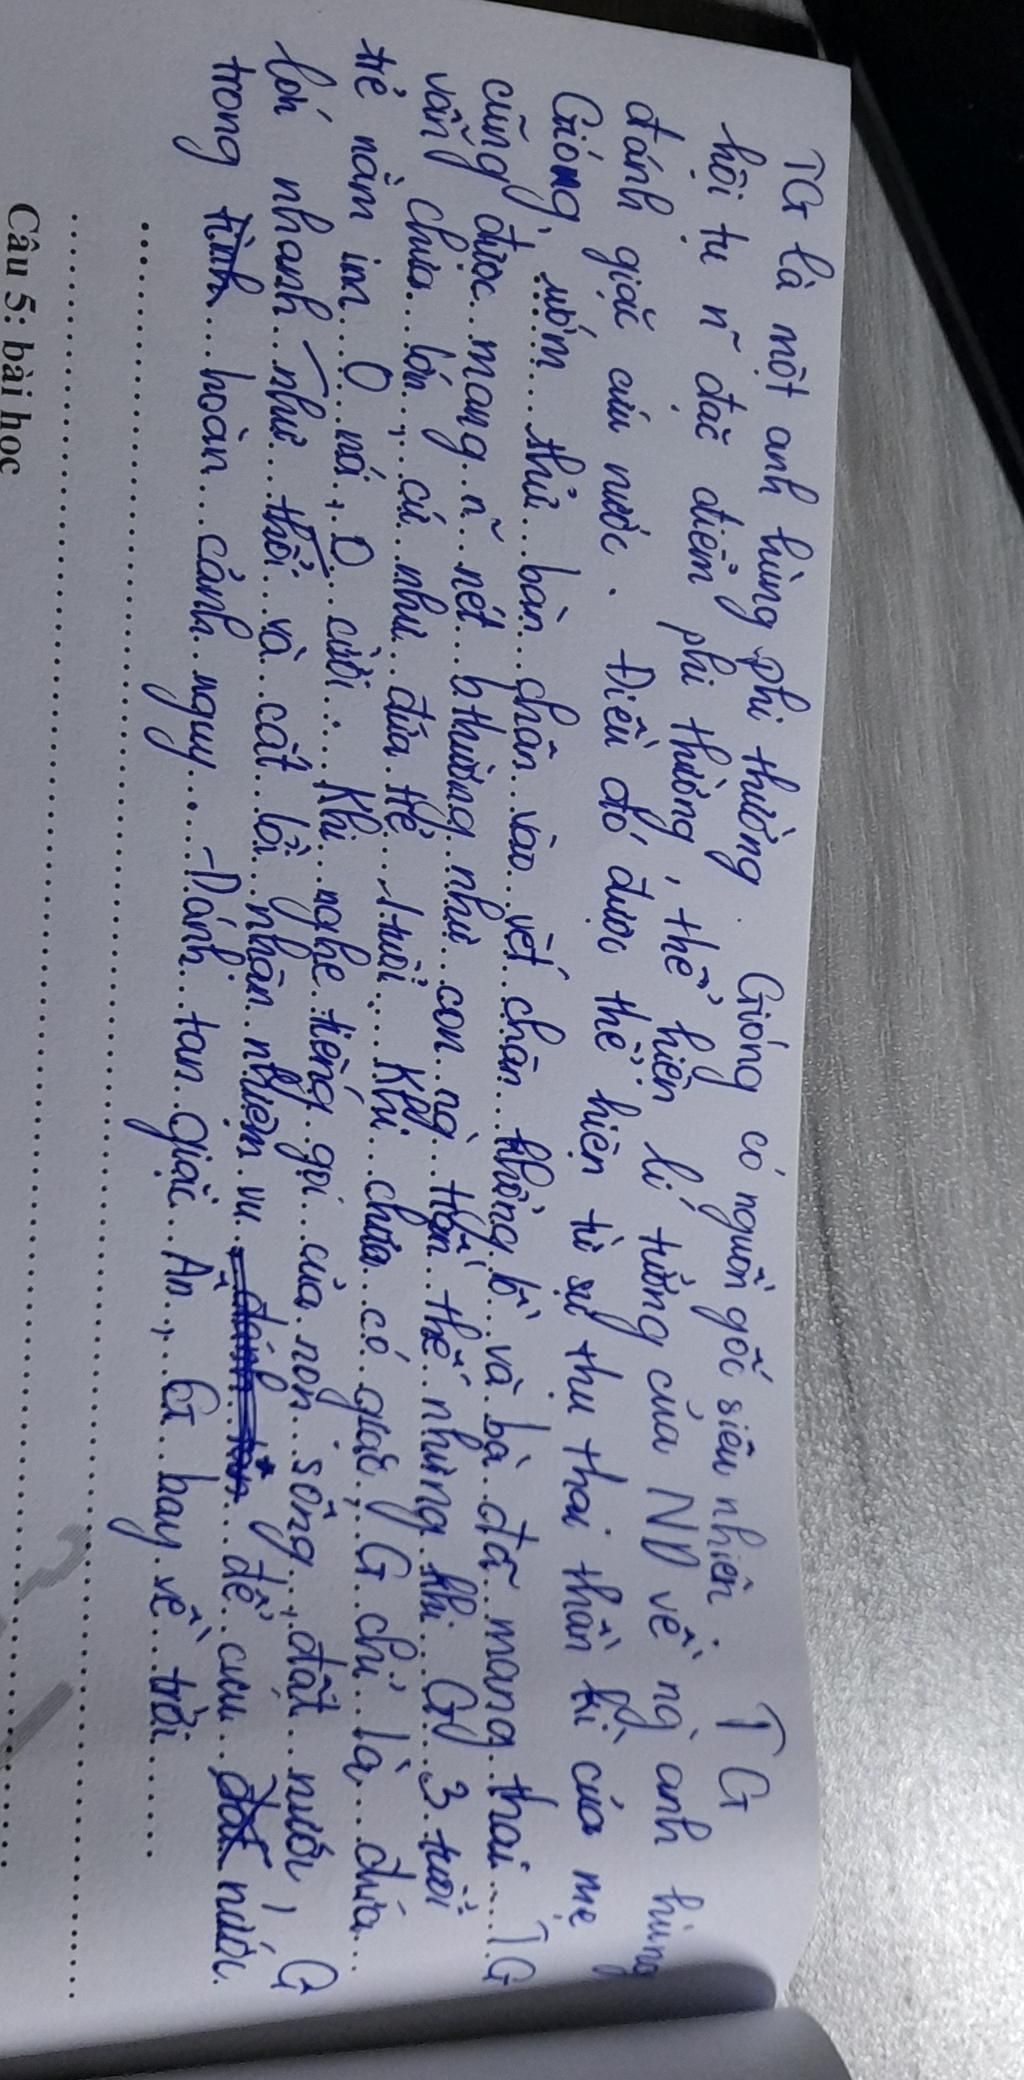 TG là một anh hùng phi thường. Gióng có nguồn gốc siêu nhiên. TG
hội tụ n~ đặc điểm phi thường, thể hiện lí tưởng của ND về ng` anh hùng
đánh giặc cứu nước. Điều đó được thể hiện từ sự thụ thai thần kì của mẹ
Gióng, ướm thử bàn chân vào vết chân khổng lồ và bà đã mang thai. TG
cũng được mang n~ nét b thường như con ng` trần thế nhưng khi G 3 tuổi
vẫn chưa lớn, cứ như đứa trẻ 1 tuổi. Khi chưa có giặc, G chỉ là đứa
trẻ nằm im 0 nói, 0 cười. Khi nghe tiếng gọi của non sông, đất nước, G
lớn nhanh như thổi và cất lời nhận nhiệm vụ để cứu nước
trong hoàn cảnh nguy. - Đánh tan giặc Ân, G bay về trời
Câu 5: bài học